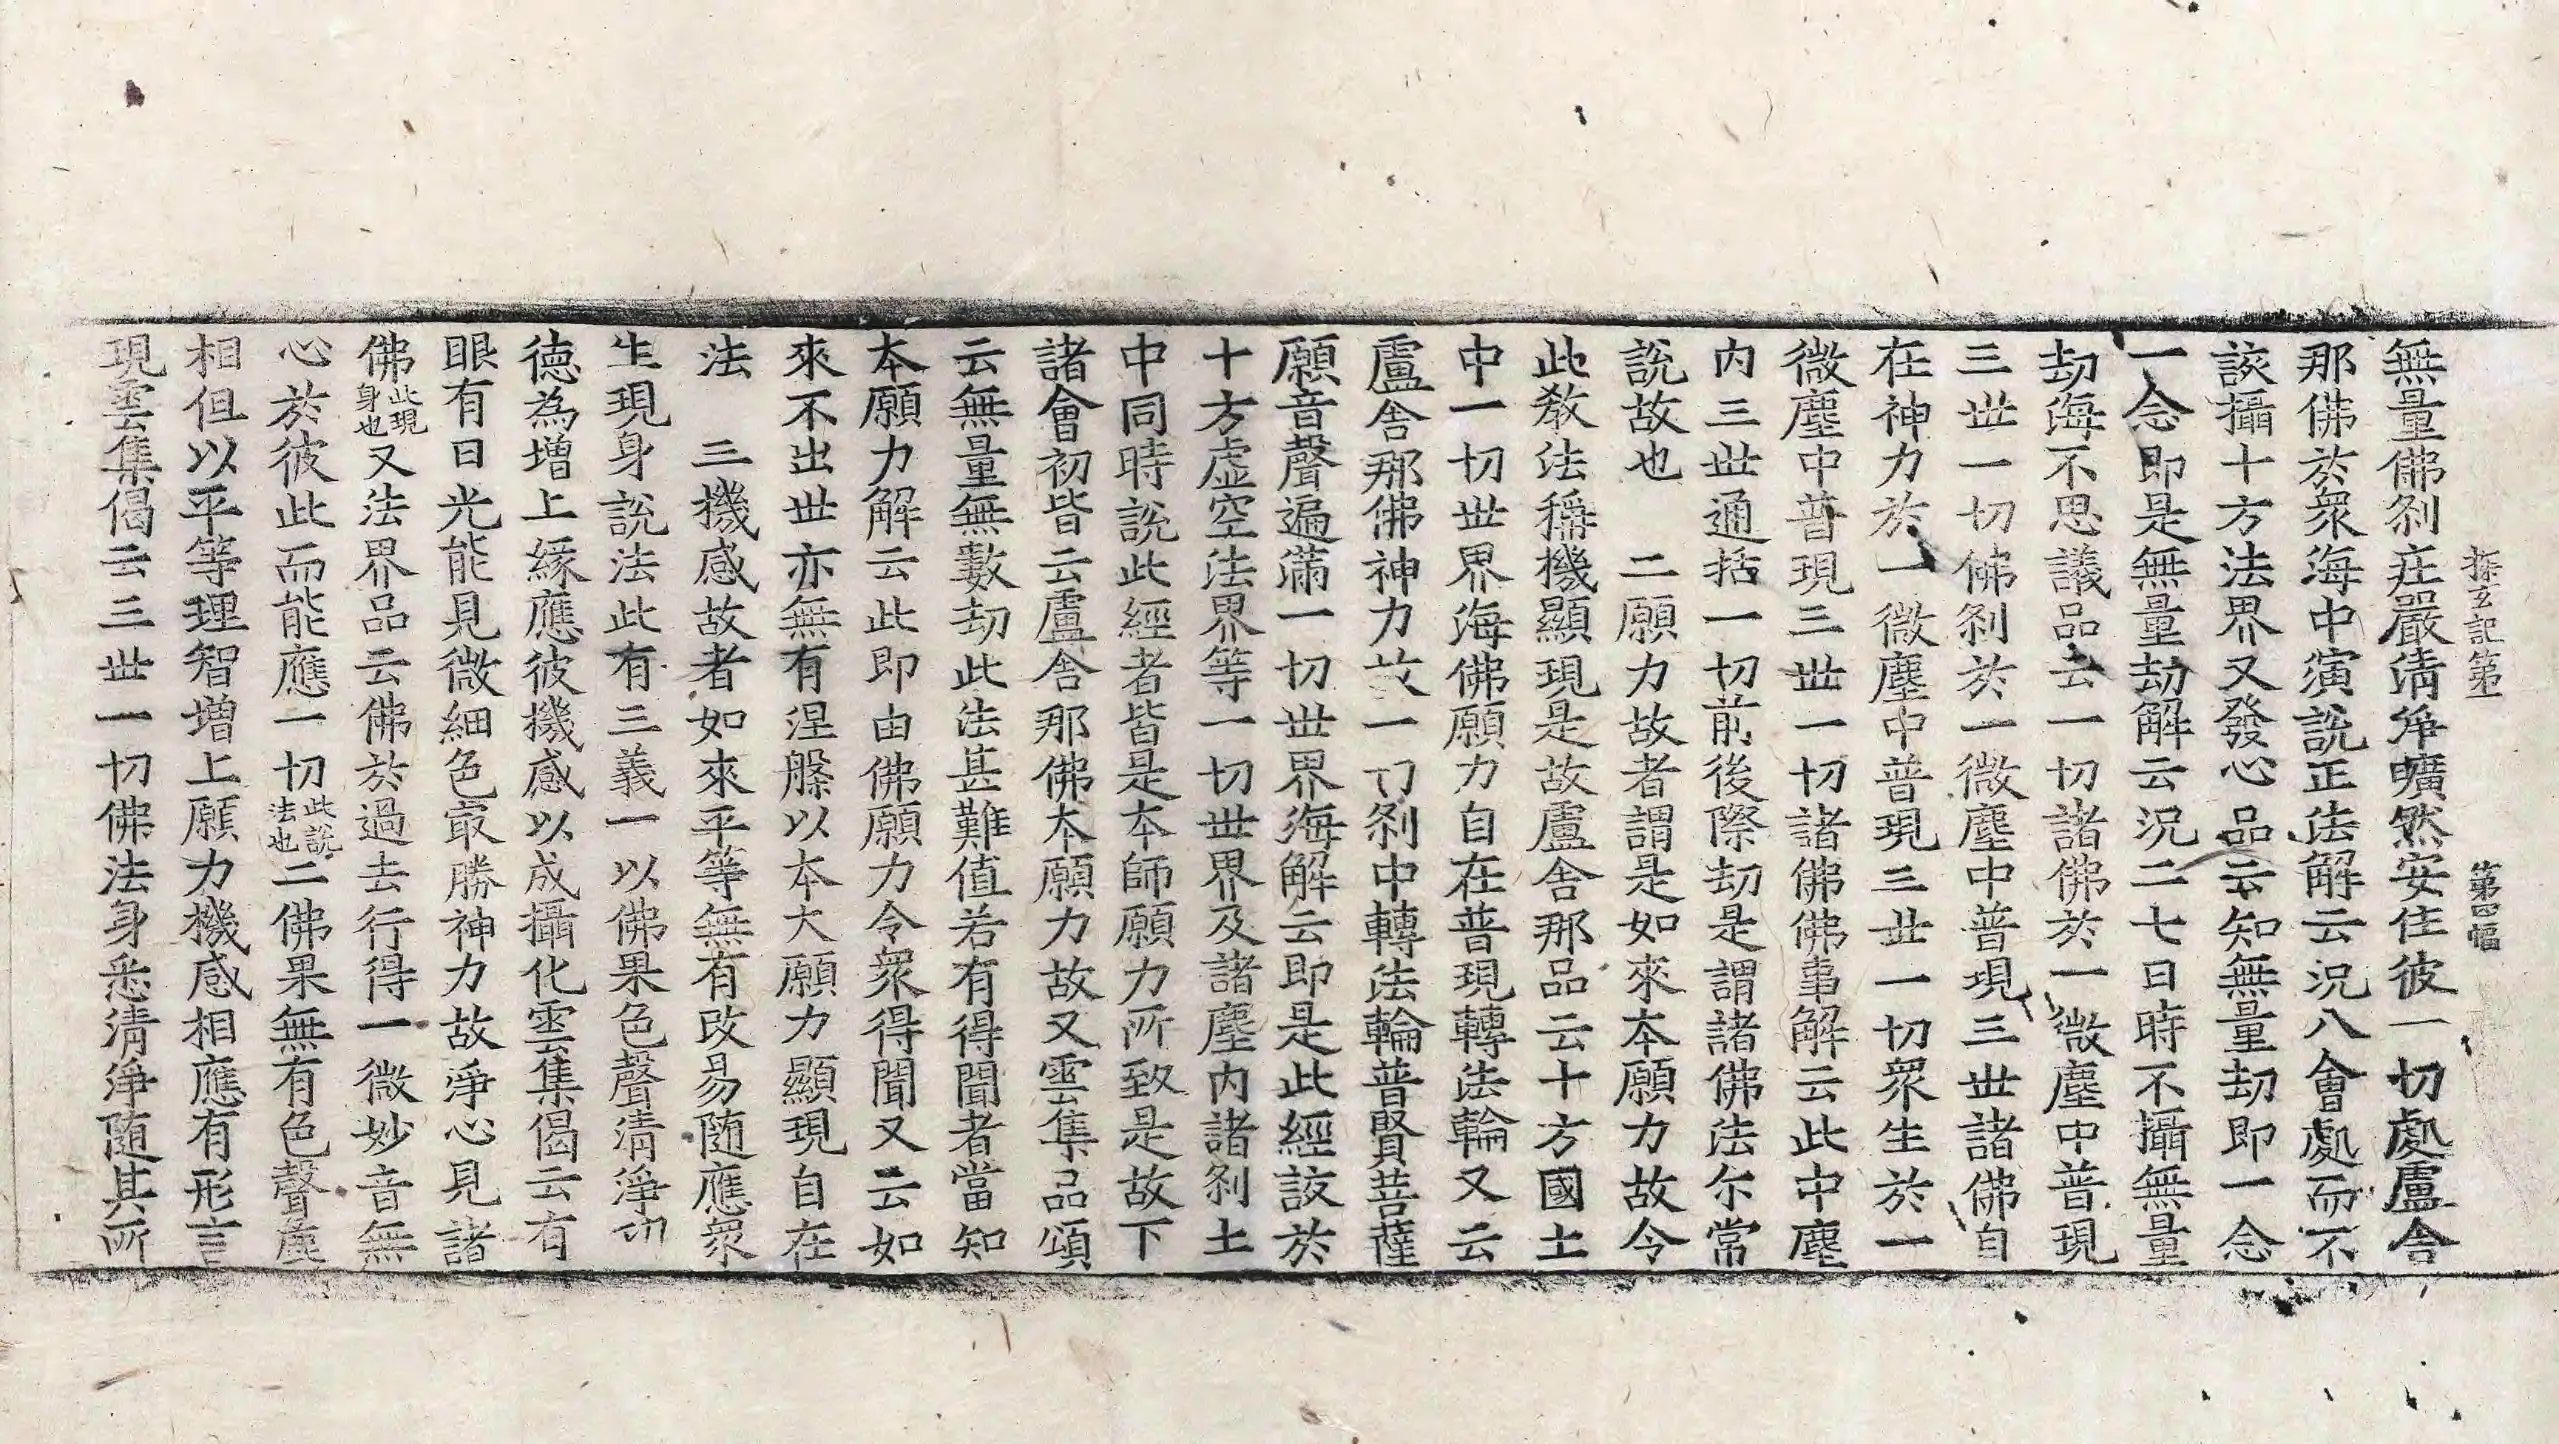 探玄記第一　第四幅
無量佛刹莊嚴清淨曠然安住彼一切處盧舍
那佛於衆海中演說正法解云況八會處而不
該攝十方法界又發心品云知無量劫即一念
一念即是無量劫解云況二七日時不攝無量
劫海不思議品云一切諸佛於一微塵中普現
三世一切佛刹於一微塵中普現三世諸佛自
在神力於一微塵中普現三世一切衆生於一
微塵中普現三世一切諸佛佛事解云此中塵
内三世通括一切前後際劫是謂諸佛法尓常
說故也　二願力故者謂是如來本願力故令
此教法稱機顯現是故盧舍那品云十方國土
中一切世界海佛願力自在普現轉法輪又云
盧舍那佛神力故一切刹中轉法輪普賢菩薩
願音聲遍滿一切世界海解云即是此經該於
十方虚空法界等一切世界及諸塵内諸刹土
中同時說此經者皆是本師願力所致是故下
諸會初皆云盧舍那佛本願力故又雲集品頌
云無量無數劫此法甚難值若有得聞者當知
本願力解云此即由佛願力令衆得聞又云如
來不出世亦無有涅槃以本大願力顯現自在
法　三機感故者如來平等無有改易随應衆
生現身說法此有三義一以佛果色聲清淨功
德為增上緣應彼機感以成攝化雲集偈云有
眼有日光能見微細色㝡勝神力故淨心見諸
佛此現身也又法界品云佛於過去行得一微妙音無
心於彼此而能應一切此說法也二佛果無有色聲塵
相但以平等理智增上願力機感相應有形言
現雲集偈云三世一切佛法身悉清淨随其所